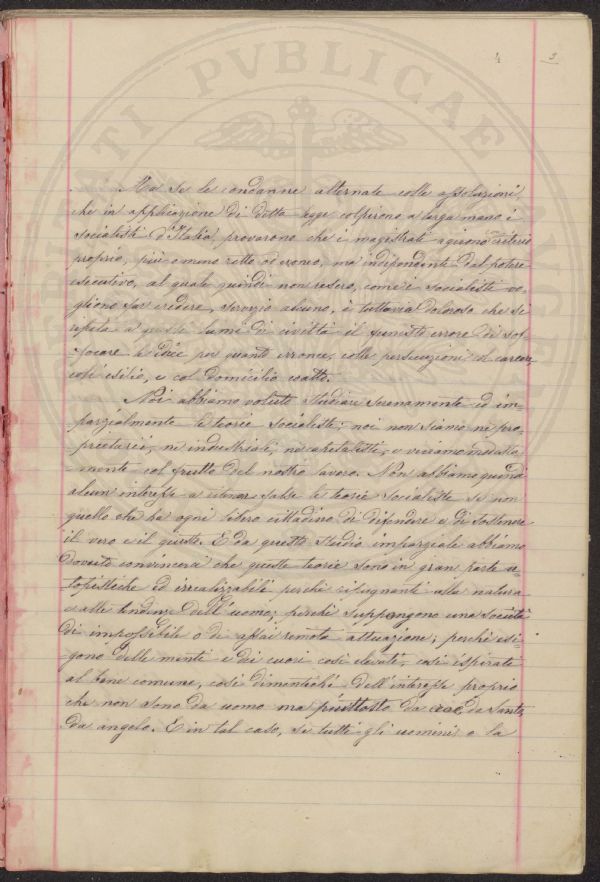 4 3
Ma se le condanne alternate colle assoluzioni,
che in applicazione di detta legge colpirono a larga mano i
socialisti d'Italia, provarono che i magistrati agirono con criterio
proprio, più o meno retto od erroneo, ma indipendente dal potere
esecutivo, al quale quindi non resero, come i socialisti vo-
gliono far credere, servizio alcuno, è tuttavia doloroso che si
ripeta a questi lumi di civiltà il funesto errore di sof-
focare le idee per quanto erronee, colle persecuzioni, il carcere,
coll'esilio, e col domicilio coatto.
Noi abbiamo voluto studiare serenamente ed im-
parzialmente le teorie socialiste: noi non siamo nè pro-
prietarii, nè industriali, nè capitalisti, e viviamo
mente col frutto del nostro lavoro. Non abbiamo quindi
alcun interesse a ritenere false le teorie socialiste se non
quello che ha ogni libero cittadino di difendere e di sostenere
il vero e il giusto. E da questo studio imparziale abbiamo
dovuto convincerci che queste teorie sono in gran parte u-
topistiche ed irrealizzabili perchè ripugnanti alla natura
e alle tendenze dell'uomo; perchè suppongono una società
di impossibile o di assai remota attuazione; perchè esi-
gono delle menti e dei cuori così elevati, così ispirati
al bene comune, così dimentichi dell'interesse proprio
che non sono da uomo ma piuttosto da eroe, da santo,
da angelo. E in tal caso, se tutti gli uomini o la